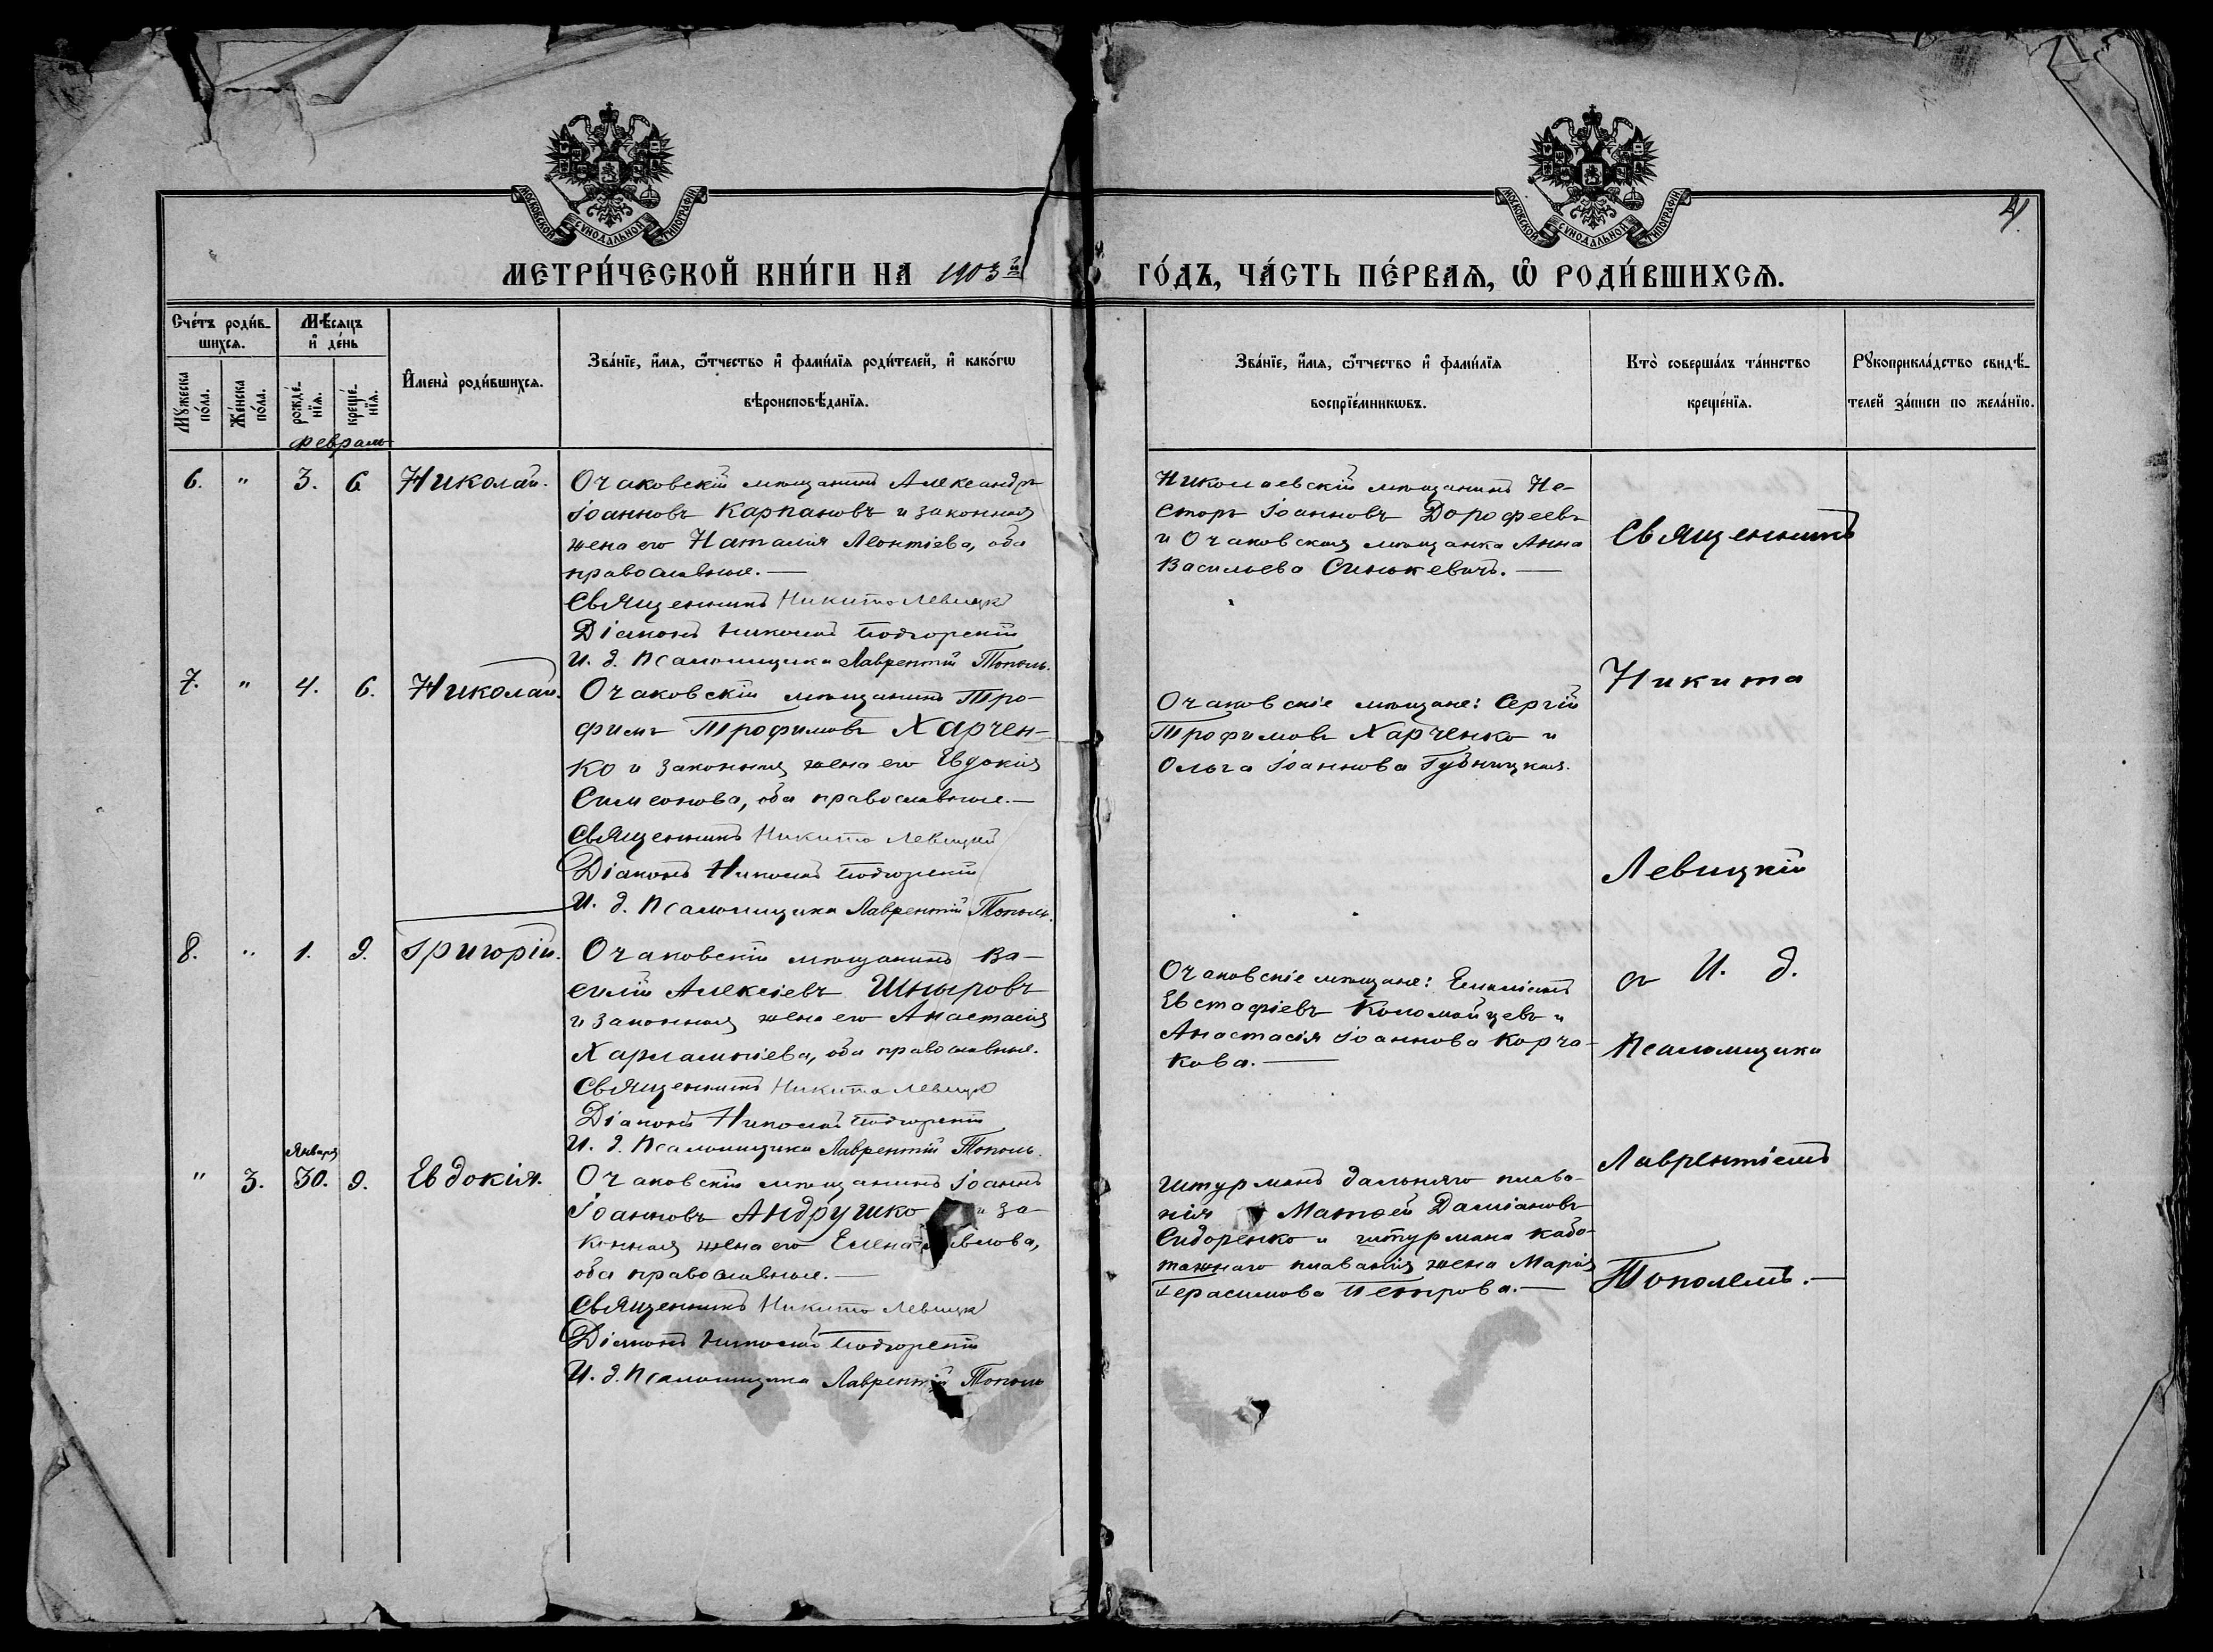 МОСКОВСКОЙ СѴНОДАЛЬНОЙ ТИПОГРАФІИ
МОСКОВСКОЙ СѴНОДАЛЬНОЙ ТИПОГРАФІИ
МЕТРИ́ЧЕСКОЙ КНИ́ГИ НА 1903 й
ГО́ДЪ, ЧА́СТЬ ПЕ́РВАѦ, Ѿ РОДИ́ВШИХСѦ.
Сче́тъ роди́в-
шихсѧ.
Мѣ́сѧцъ
и҆ де́нь
Мꙋ́жеска
по́ла.
Же́нска
по́ла.
рожде́-
нїѧ.
креще́-
нїѧ.
И҆мена̀ роди́вшихсѧ.
Зва́нїе, и҆́мѧ, ѻ҆́тчество и҆ фами́лїѧ роди́телей, и҆ како́гѡ
вѣроисповѣ́данїѧ.
Зва́нїе, и҆́мѧ, ѻ҆́тчество и҆ фами́лїѧ
воспрїе́мникѡвъ.
Кто̀ соверша́лъ та́инство
креще́нїѧ.
Рꙋкоприкла́дство свидѣ́-
телей за́писи по жела́нїю.
февраль
6. " 3. 6. Николай.
Очаковскій мѣщанинъ Александръ
Іоанновъ Карпановъ и законная
жена его Наталія Леонтіева, оба
православные.—
Священникъ Никита Левицкій
Діаконъ Николай Подгорскій
И. д. Псаломщика Лаврентій Тополь.
Николаевскій мѣщанинъ Не-
сторъ Іоанновъ Дорофеевъ
и Очаковская мѣщанка Анна
Васильева Синькевичъ.—
7. " 4. 6. Николай.
Очаковскій мѣщанинъ Тро-
фимъ Трофимовъ Харчен-
ко и законная жена его Евдокія
Симеонова, оба православные.—
Священникъ Никита Левицкій
Діаконъ Николай Подгорскій
И. д. Псаломщика Лаврентій Тополь.
Очаковскіе мѣщане: Сергій
Трофимовъ Харченко и
Ольга Іоаннова Губницкая.
8. " 1. 9. Григорій.
Очаковскій мѣщанинъ Ва-
силій Алексіевъ Шныровъ
и законная жена его Анастасія
Харлампіева, оба православные.
Священникъ Никита Левицкій
Діаконъ Николай Подгорскій
И. д. Псаломщика Лаврентій Тополь.
Очаковскіе мѣщане:
Евстафіевъ Коломойцевъ и
Анастасія Іоаннова Корча-
кова.—
Января
" 3. 30. 9. Евдокія.
Очаковскій мѣщанинъ Іоаннъ
Іоанновъ Андрушко и за-
конная жена его Елена
оба православные.—
Священникъ Никита Левицкій
Діаконъ Николай Подгорскій
И. д. Псаломщика Лаврентій Тополь
Штурманъ дальняго плава-
нія Матѳей Даміановъ
Сидоренко и штурмана кабо-
тажнаго плаванія жена Марія
Герасимова Петрова.—
Священникъ
Никита
Левицкій
съ И. д.
Псаломщика
Лаврентіемъ
Тополемъ.—